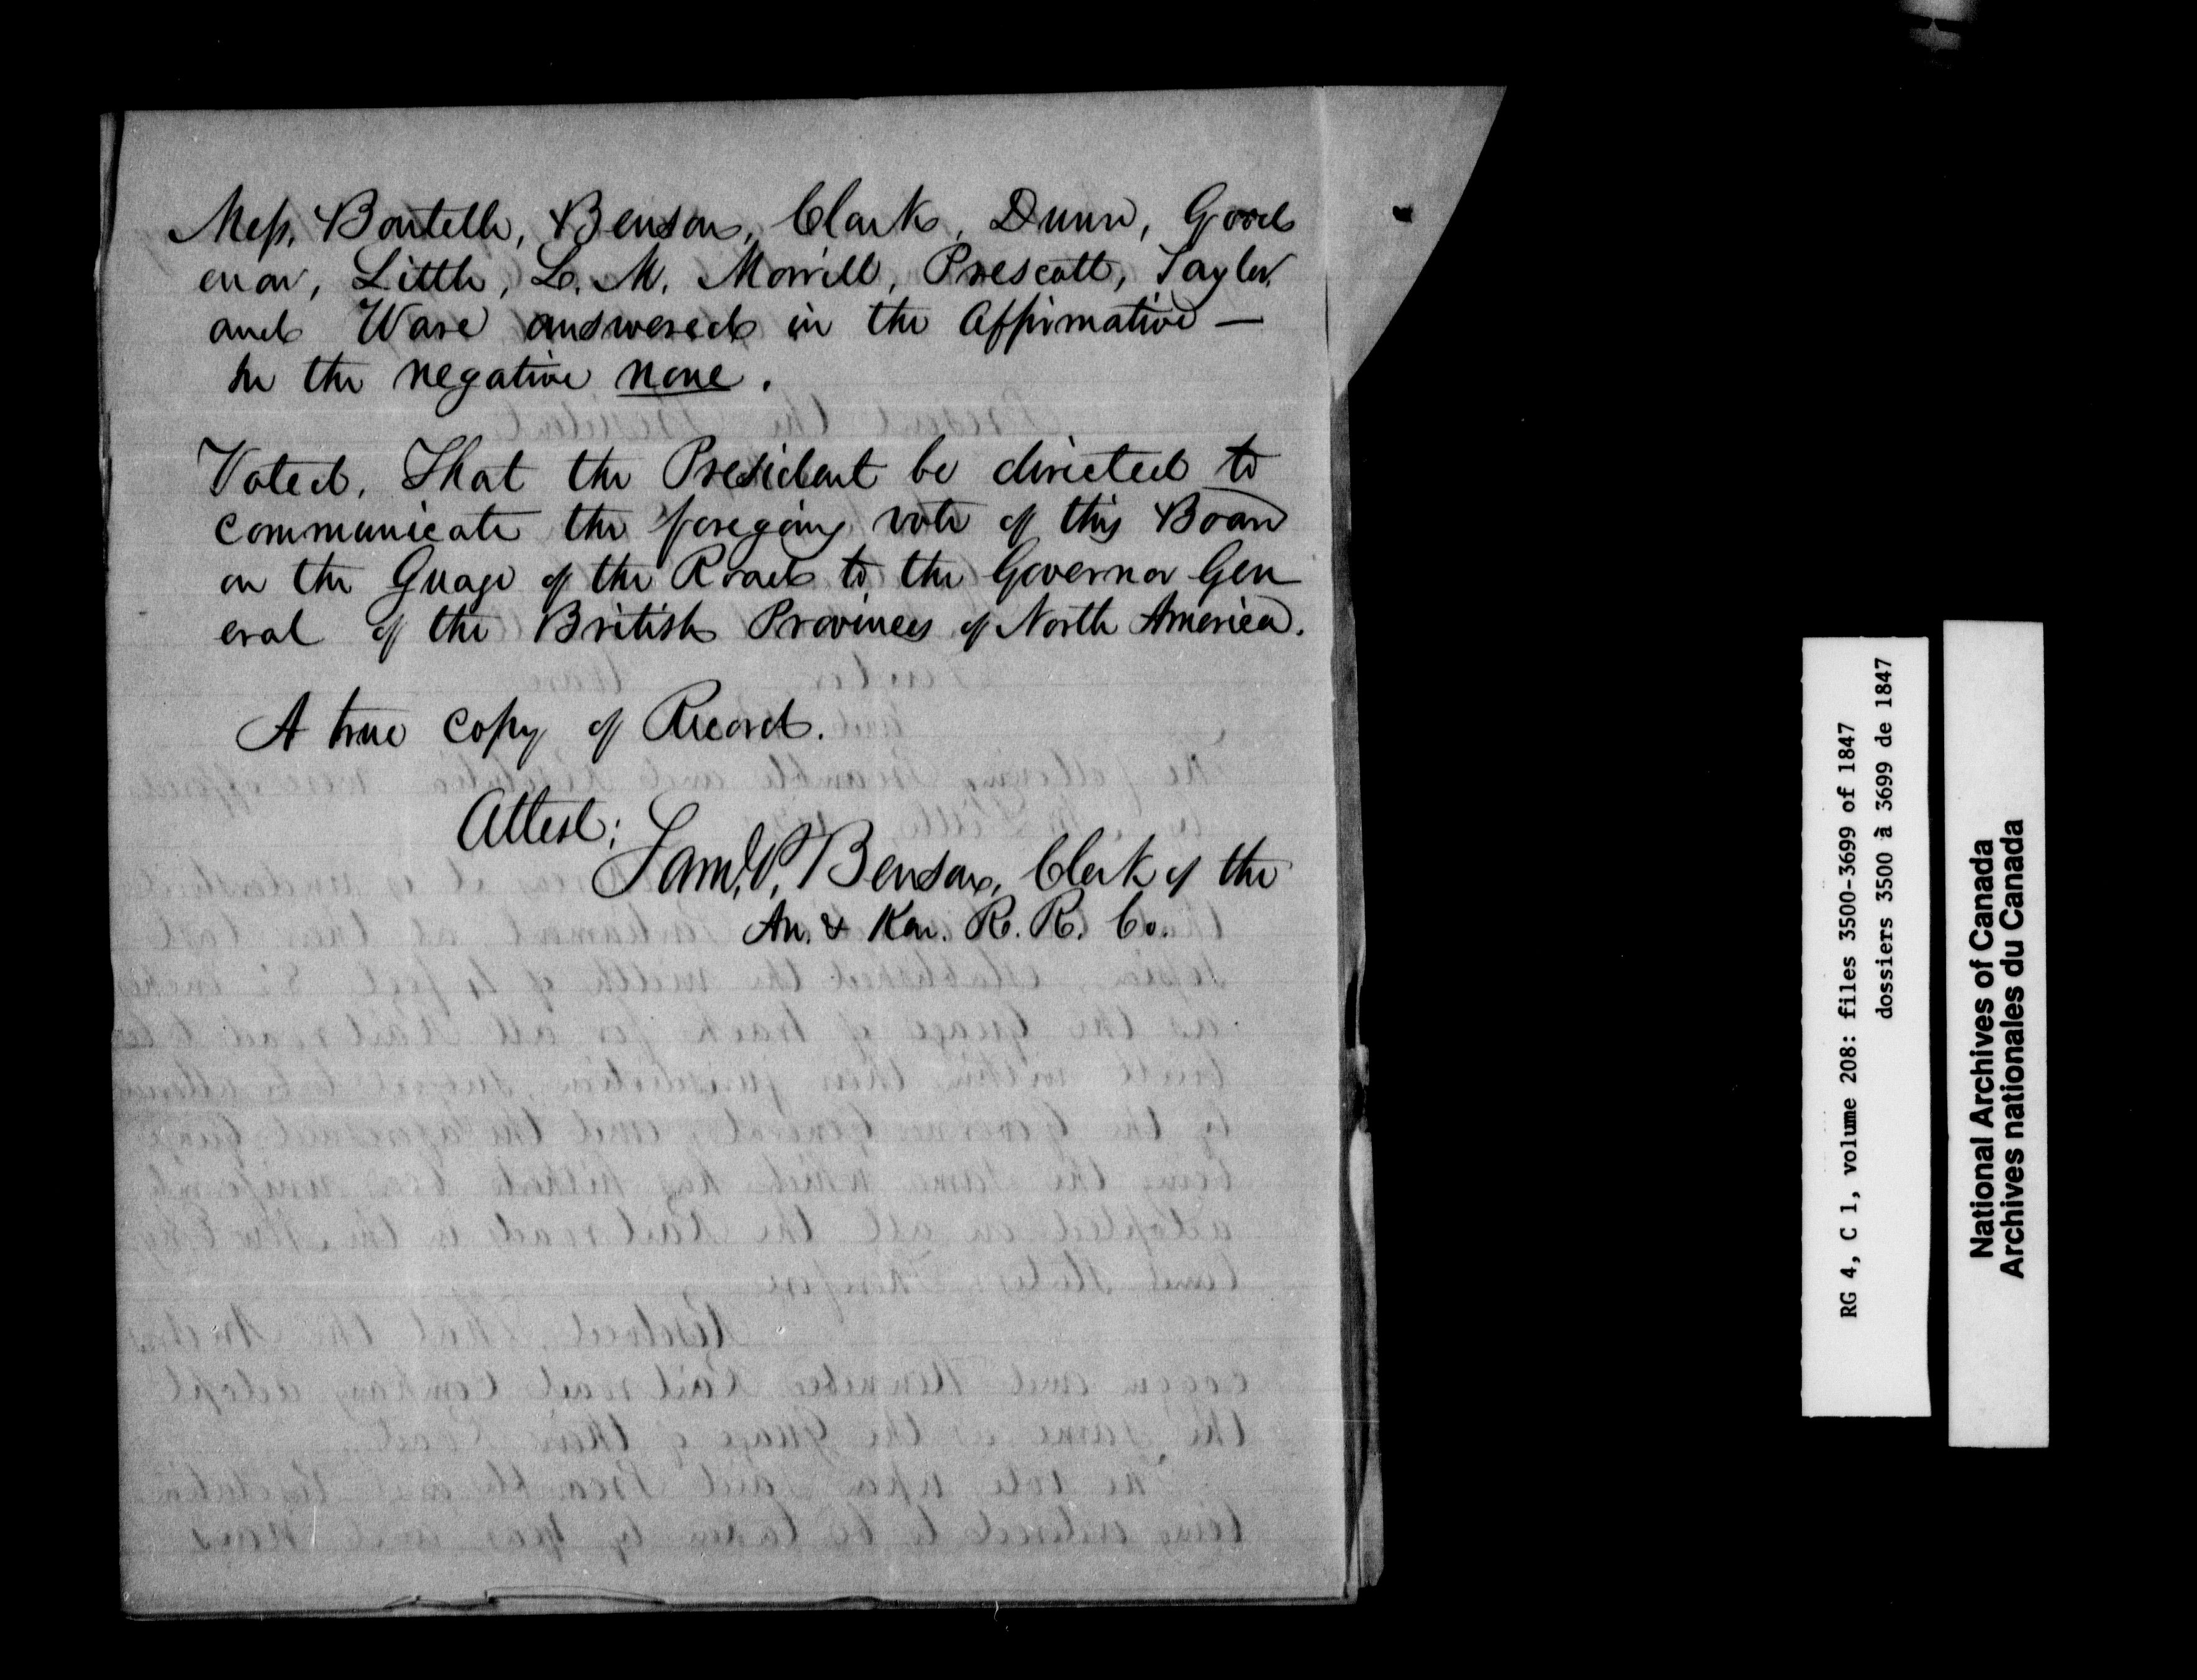 Mess. Boutelle, Benson, Clark, Dunn, Good
enow, Little, L. M. Morrill, Prescott, Taylor
and Ware answered in the Affirmative —
In the negative none.
Voted, That the President be directed to
communicate the foregoing vote of this Board
on the Guage of the Road to the Governor Gen
eral of the British Provinces of North America.
A true copy of Record.
Attest;
Saml. P. Benson, Clerk of the
An. & Ken. R. R. Co.
RG 4, C 1, volume 208: files 3500-3699 of 1847
dossiers 3500 à 3699 de 1847
National Archives of Canada
Archives nationales du Canada